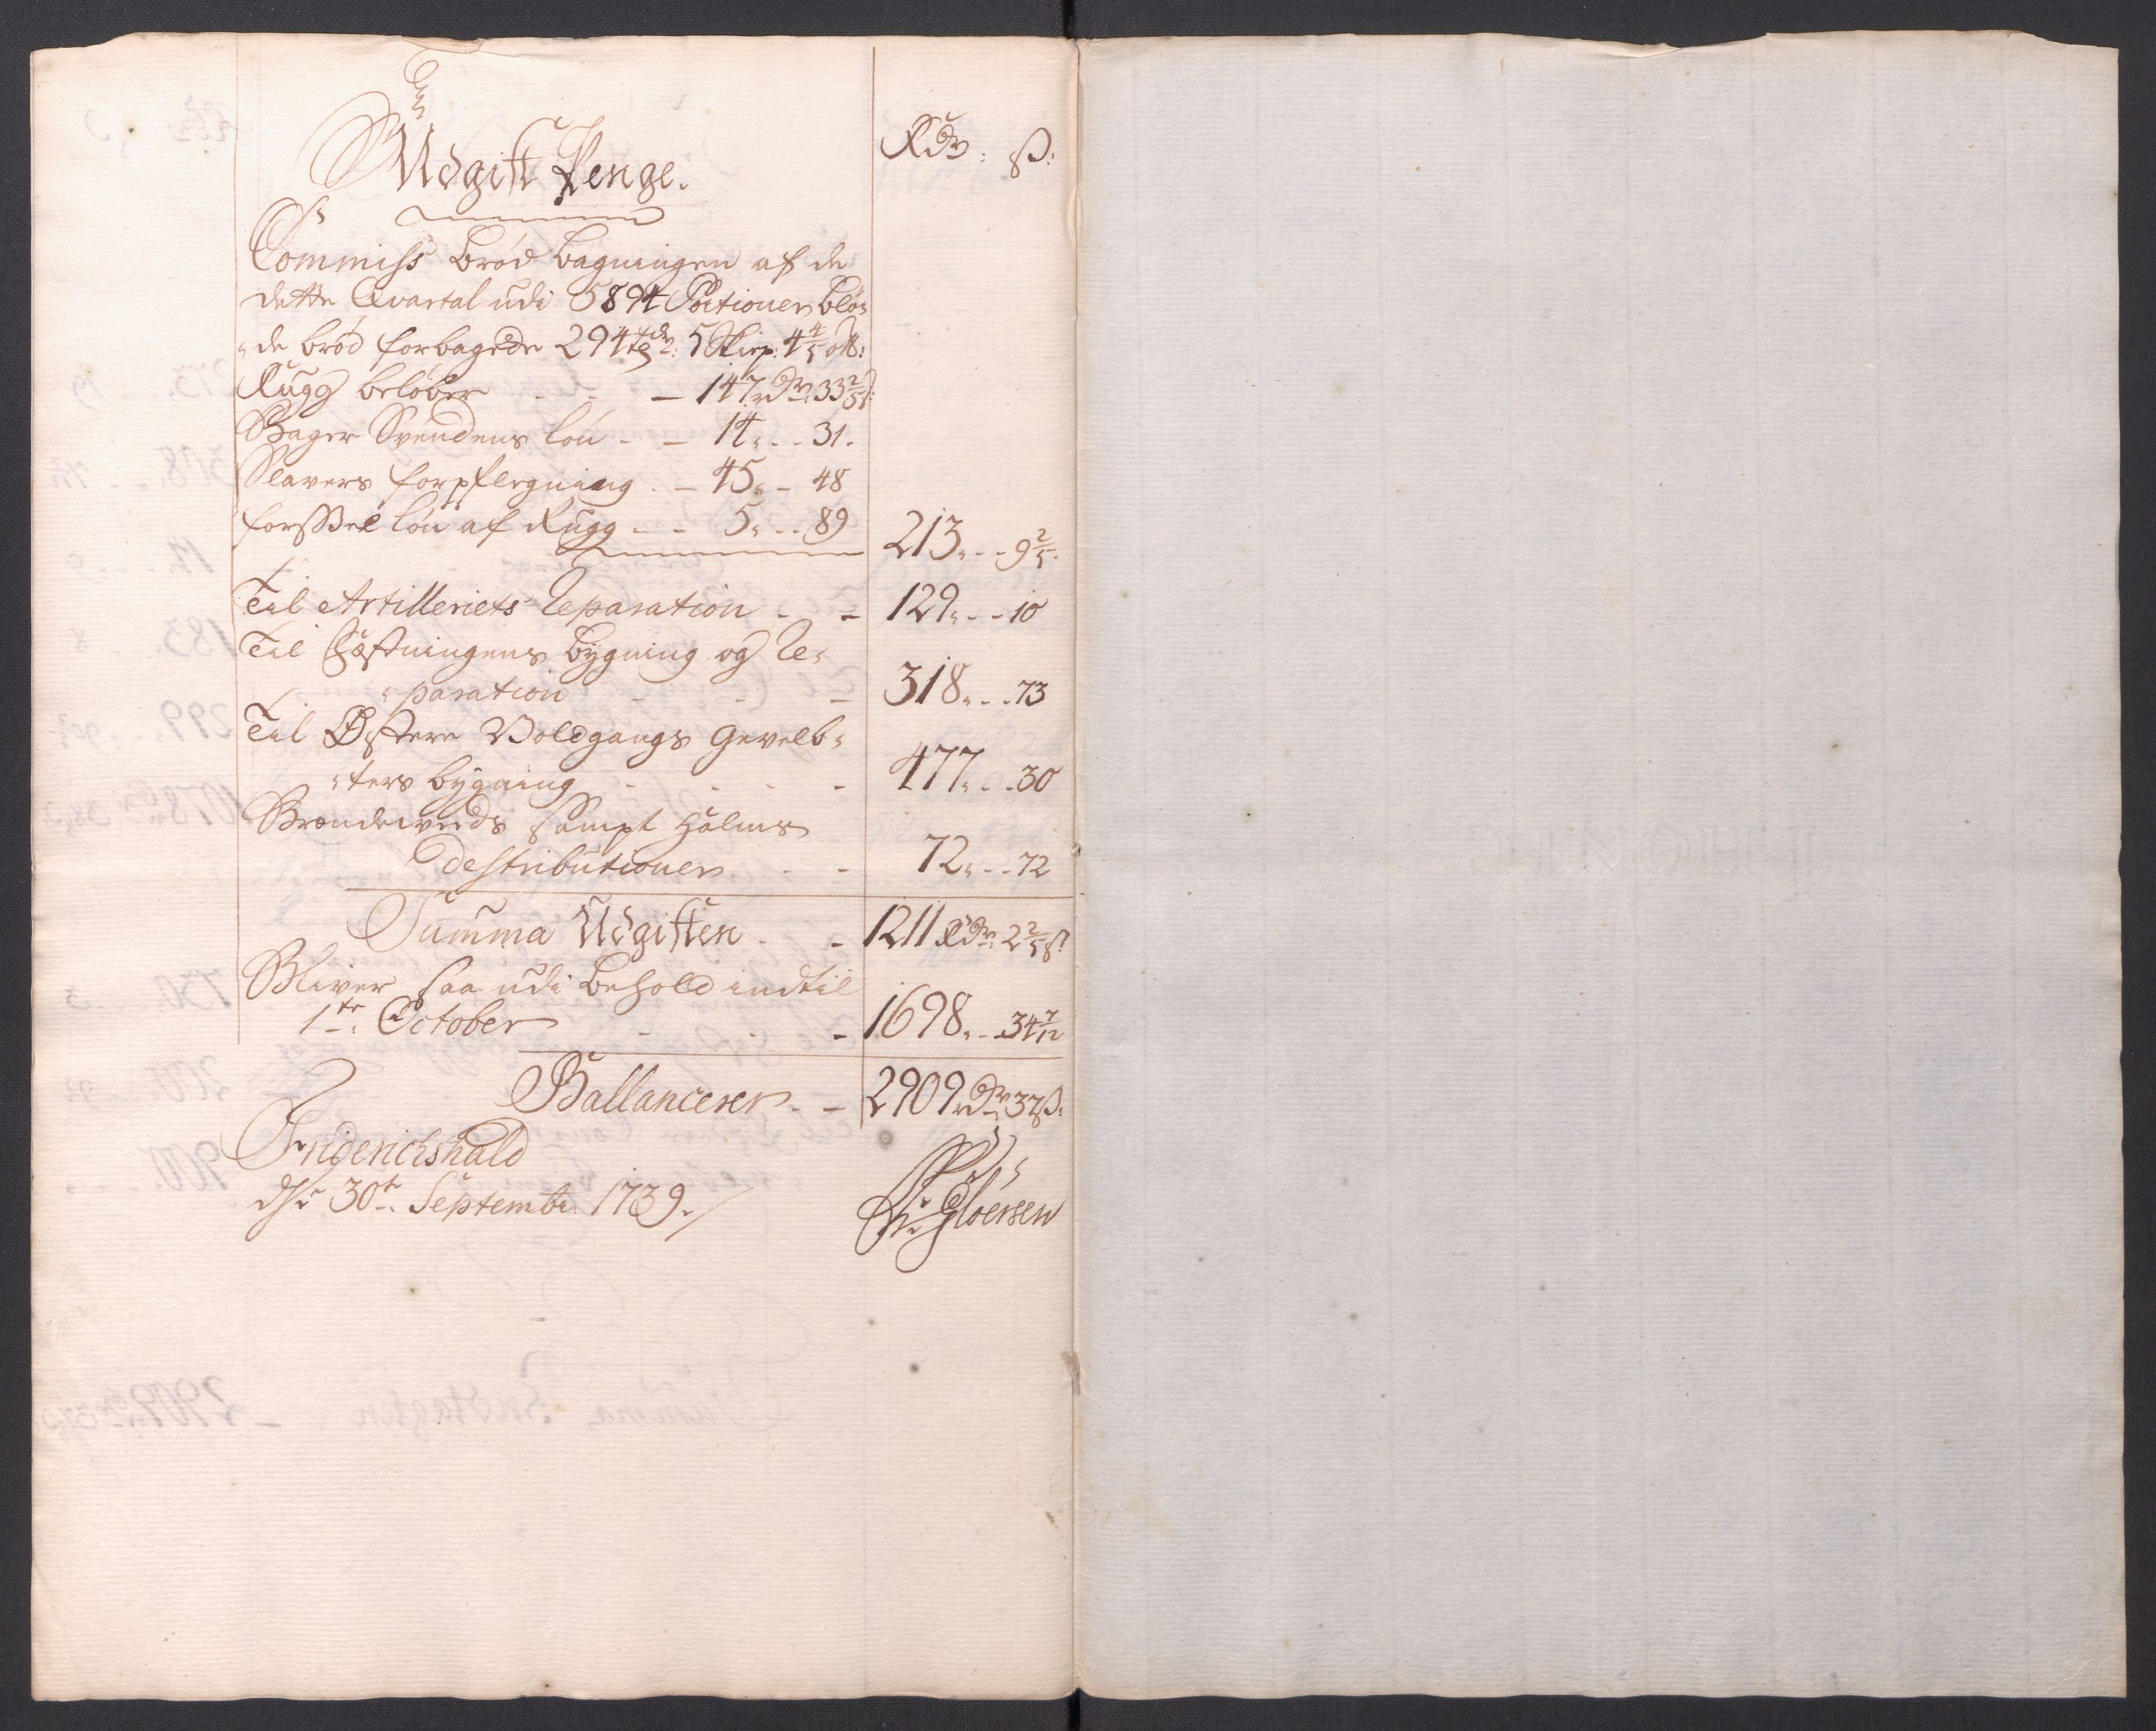 Udgift Penge.
Rdr: ß:
Commiss brød bagningen af de
dette Qvartal udi 5894 Portioner blø¬
"de brød forbagede 294 tdr: 5 Skiep: 4 4/5
Rugg beløber - - - 147 rdr: 33 2/5 ß:
Bager Svendens løn - - 14 " - - 31.
Slavers forpflegning. - 45 " - 48
løn af Rugg - - 5 " - - 89
213 " - - 9 2/5.
Til Artilleriets Reparation - - 129 " - - 10
Til Fæstningens bygning og Re¬
"paration - - - 318 " - - 73
Til Østere Voldgangs Gevelb¬
"ters bygning - - - - 477 " - - 30
Brændeveeds sampt Halms
destributioner - - 72 " - - 72
Summa Udgiften - - 1211 Rdr: 2 2/5 ß:
Bliver saa udi behold indtil
1te: October - - - 1698 " - - 34 7/12
Ballancerer - - 2909 rdr: 37 ß:
Friderichshald
30te: Septembr: 1739 ./
Gløersen